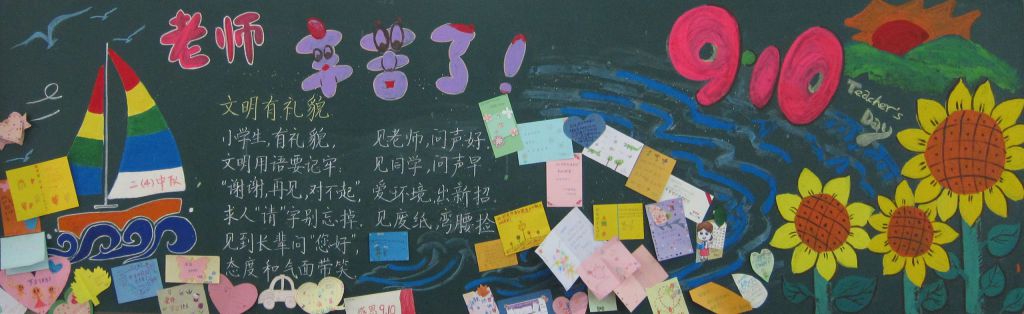 老师辛苦了！
9·10
Teacher's
Day
文明有礼貌
小学生,有礼貌,
文明用语要记牢:
"谢谢,再见,对不起",
求人"请"字别忘掉.
见到长辈问"您好"
态度和会面带笑.
见老师,问声好.
见同学,问声早.
爱环境,出新招.
见废纸,弯腰捡
二(4)中队
9.10